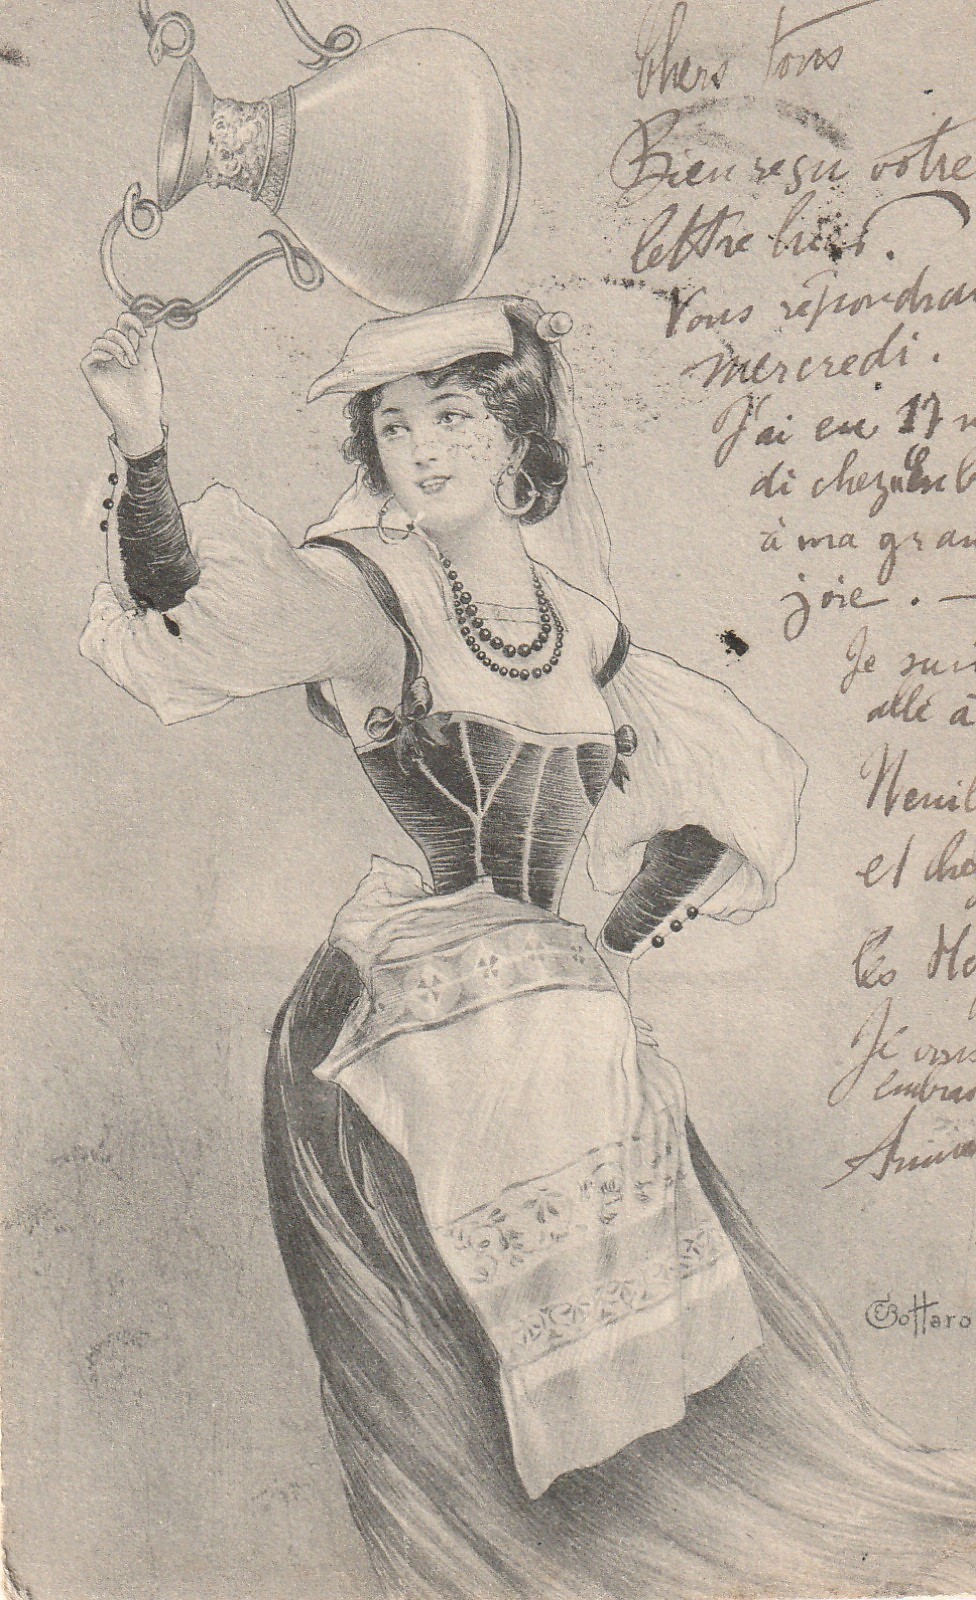 Chers tous
Bien reçu votre
lettre hier.
Vous répondrai
mercredi.
J'ai eu 17
di chez
à ma gran
joie. —
Je suis
allé à
Neuil
et che
les Ho
Je vous
embras
E Bottaro